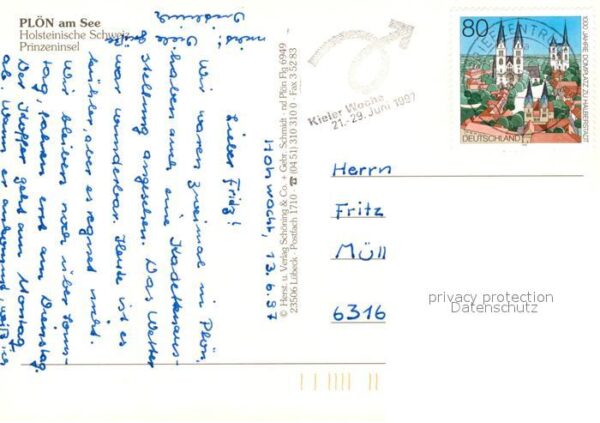 PLÖN am See
Holsteinische Schweiz
Prinzeninsel
Hohwacht, 13.6.97
Lieber Fritz!
Wir waren zweimal in Plön,
haben auch eine Kadettenaus-
stellung angesehen. Das Wetter
war wunderbar. Heute ist es
kühler, aber es regnet nicht.
Wir bleiben noch über Sonn-
tag, fahren erst am Dienstag.
Der Koffer geht am Montag
ab. Wann er ankommt, weiß ich
nicht!
Viele
© Herst. u. Verlag Schöning & Co. + Gebr. Schmidt · nd Plön Flg 6949
23506 Lübeck · Postfach 1710 · ☎ (04 51) 310 310 0 · Fax 3 52 83
Kieler Woche
21.-29. Juni 1997
80
1000 JAHRE DOMPLATZ ZU HALBERSTADT
DEUTSCHLAND
Herrn
Fritz
Müll
6316
privacy protection
Datenschutz